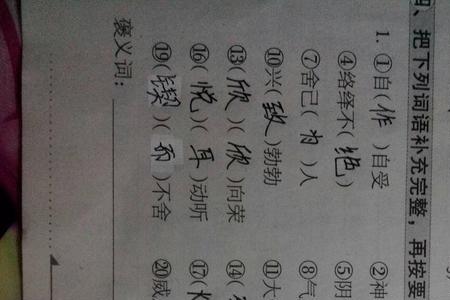 四、把下列词语补充完整，再按要
1. ①自(作)自受 ②神
④络绎不(绝) ⑤阴
⑦舍己(为)人 ⑧气
⑩兴(致)勃勃 ⑪大
⑬(欣)(欣)向荣 ⑭(
⑯(悦)(耳)动听 ⑰(
⑲(锲)(而)不舍 ⑳威
褒义词：